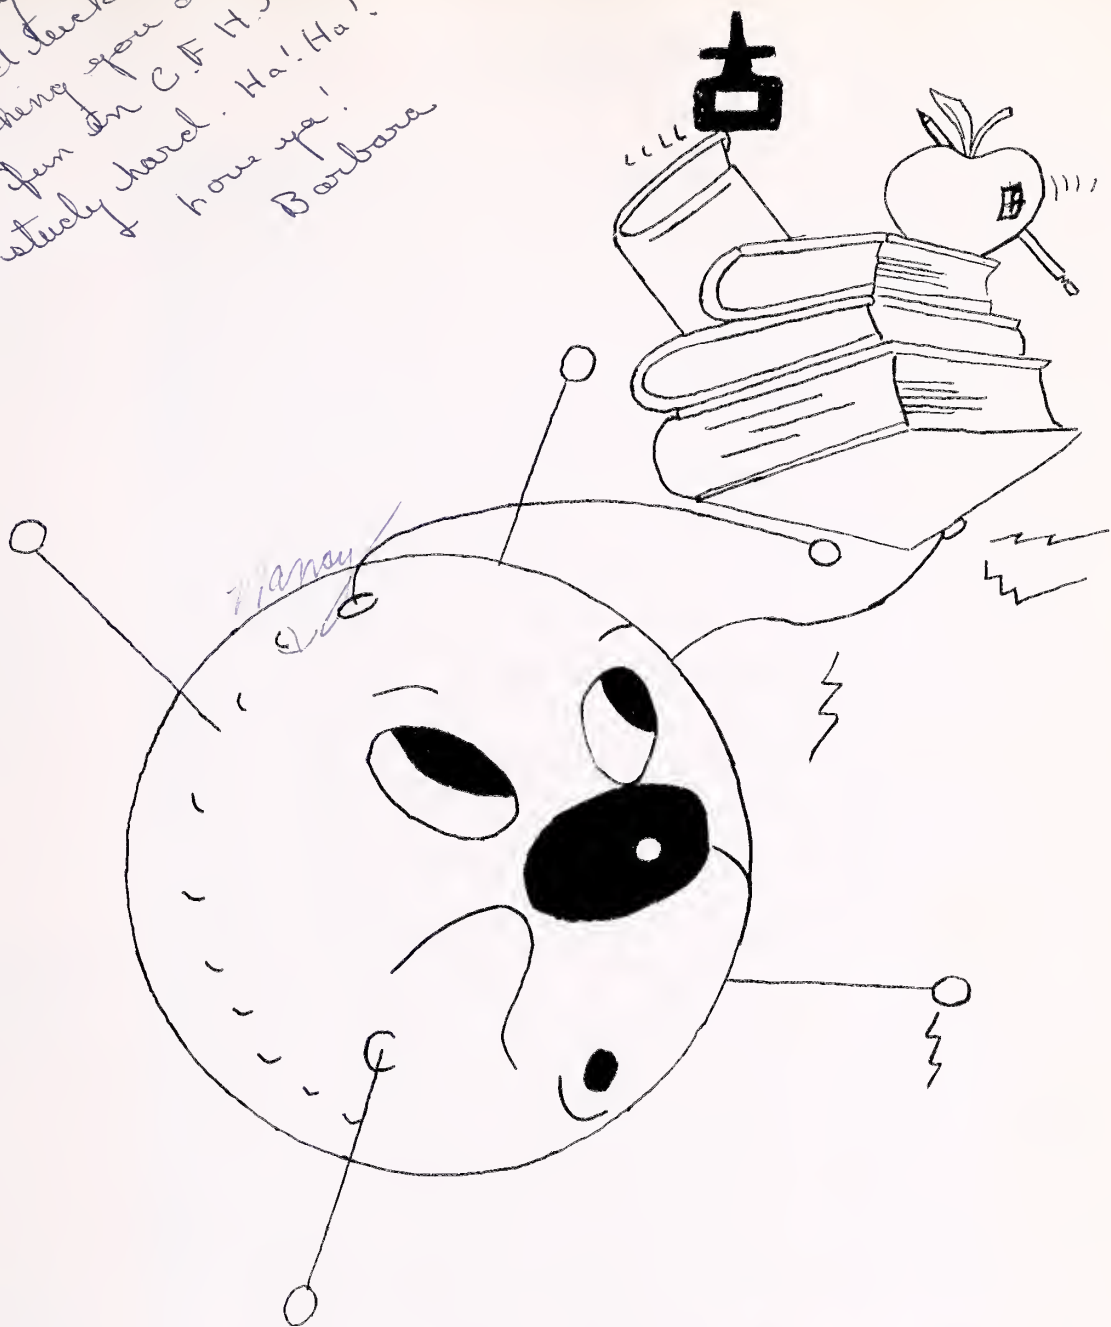 luck
you
fun in C.F.H.
study hard. Ha! Ha!
Love ya!
Barbara
Nancy